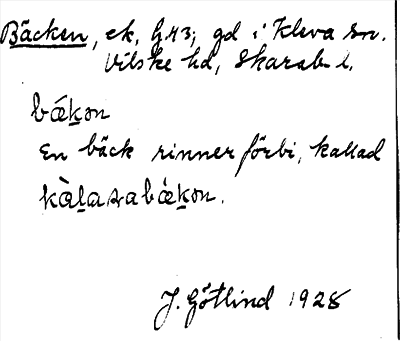 Bäcken, ek, G43; gd i Kleva sn.
Vilske hd, Skarab. l.
bǽḵən
En bäck rinner förbi, kallad
kàḻasabǽḵən.
J. Götlind 1928